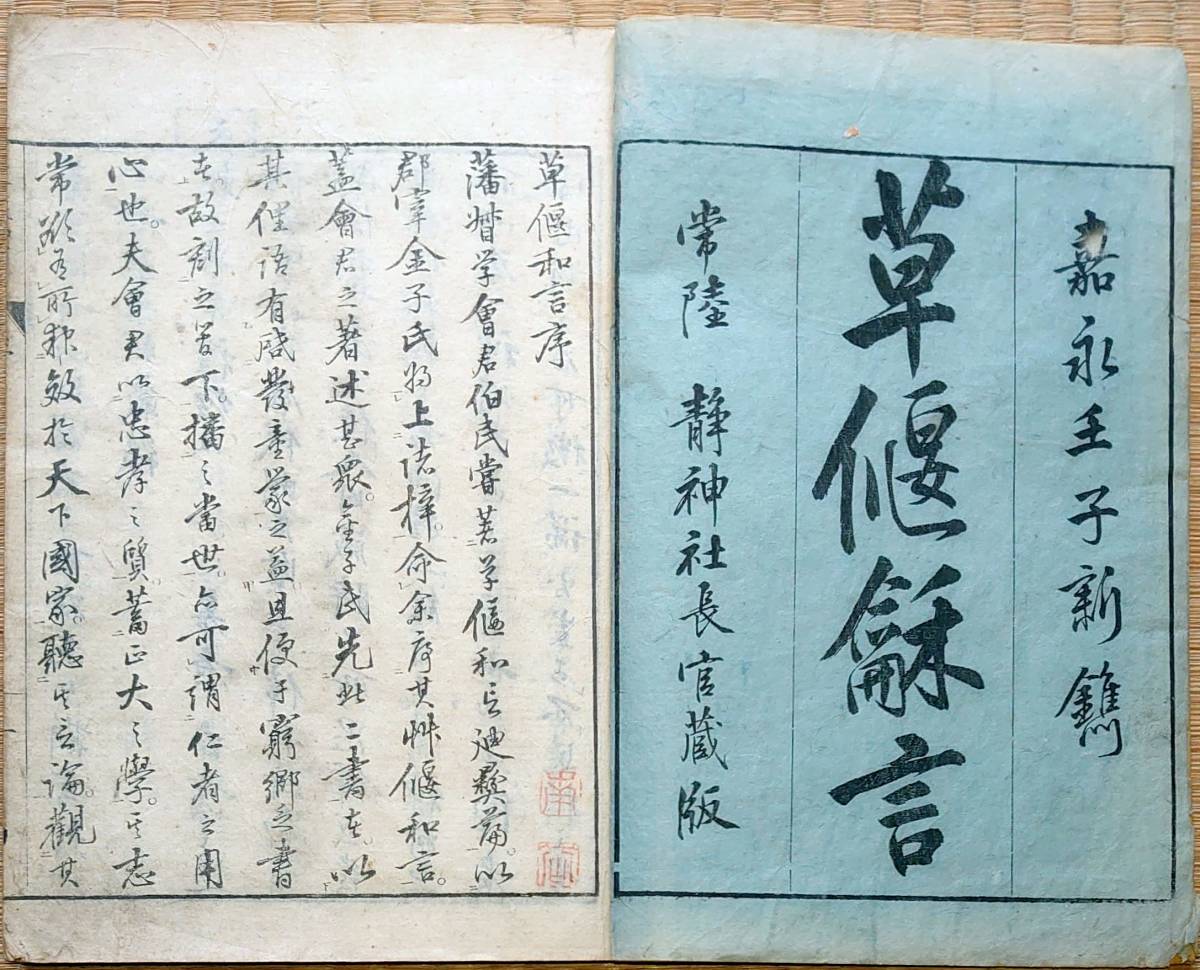 嘉永壬子新鐫
草偃龢言
常陸 靜神社長官蔵版
草偃和言序
藩督学會君伯民嘗著草偃和言迪彝篇以
郡宰金子氏将上諸梓命余序其艸偃和言
蓋會君之著述甚眾金子氏先此二書者以
其俚語有感發童蒙之益且便于窮郷之書
故刻之下播之當世亦可謂仁者之用
心也夫會君以忠孝之質蓄正大之學其志
常欲有所報效於天下國家聽其言論觀其